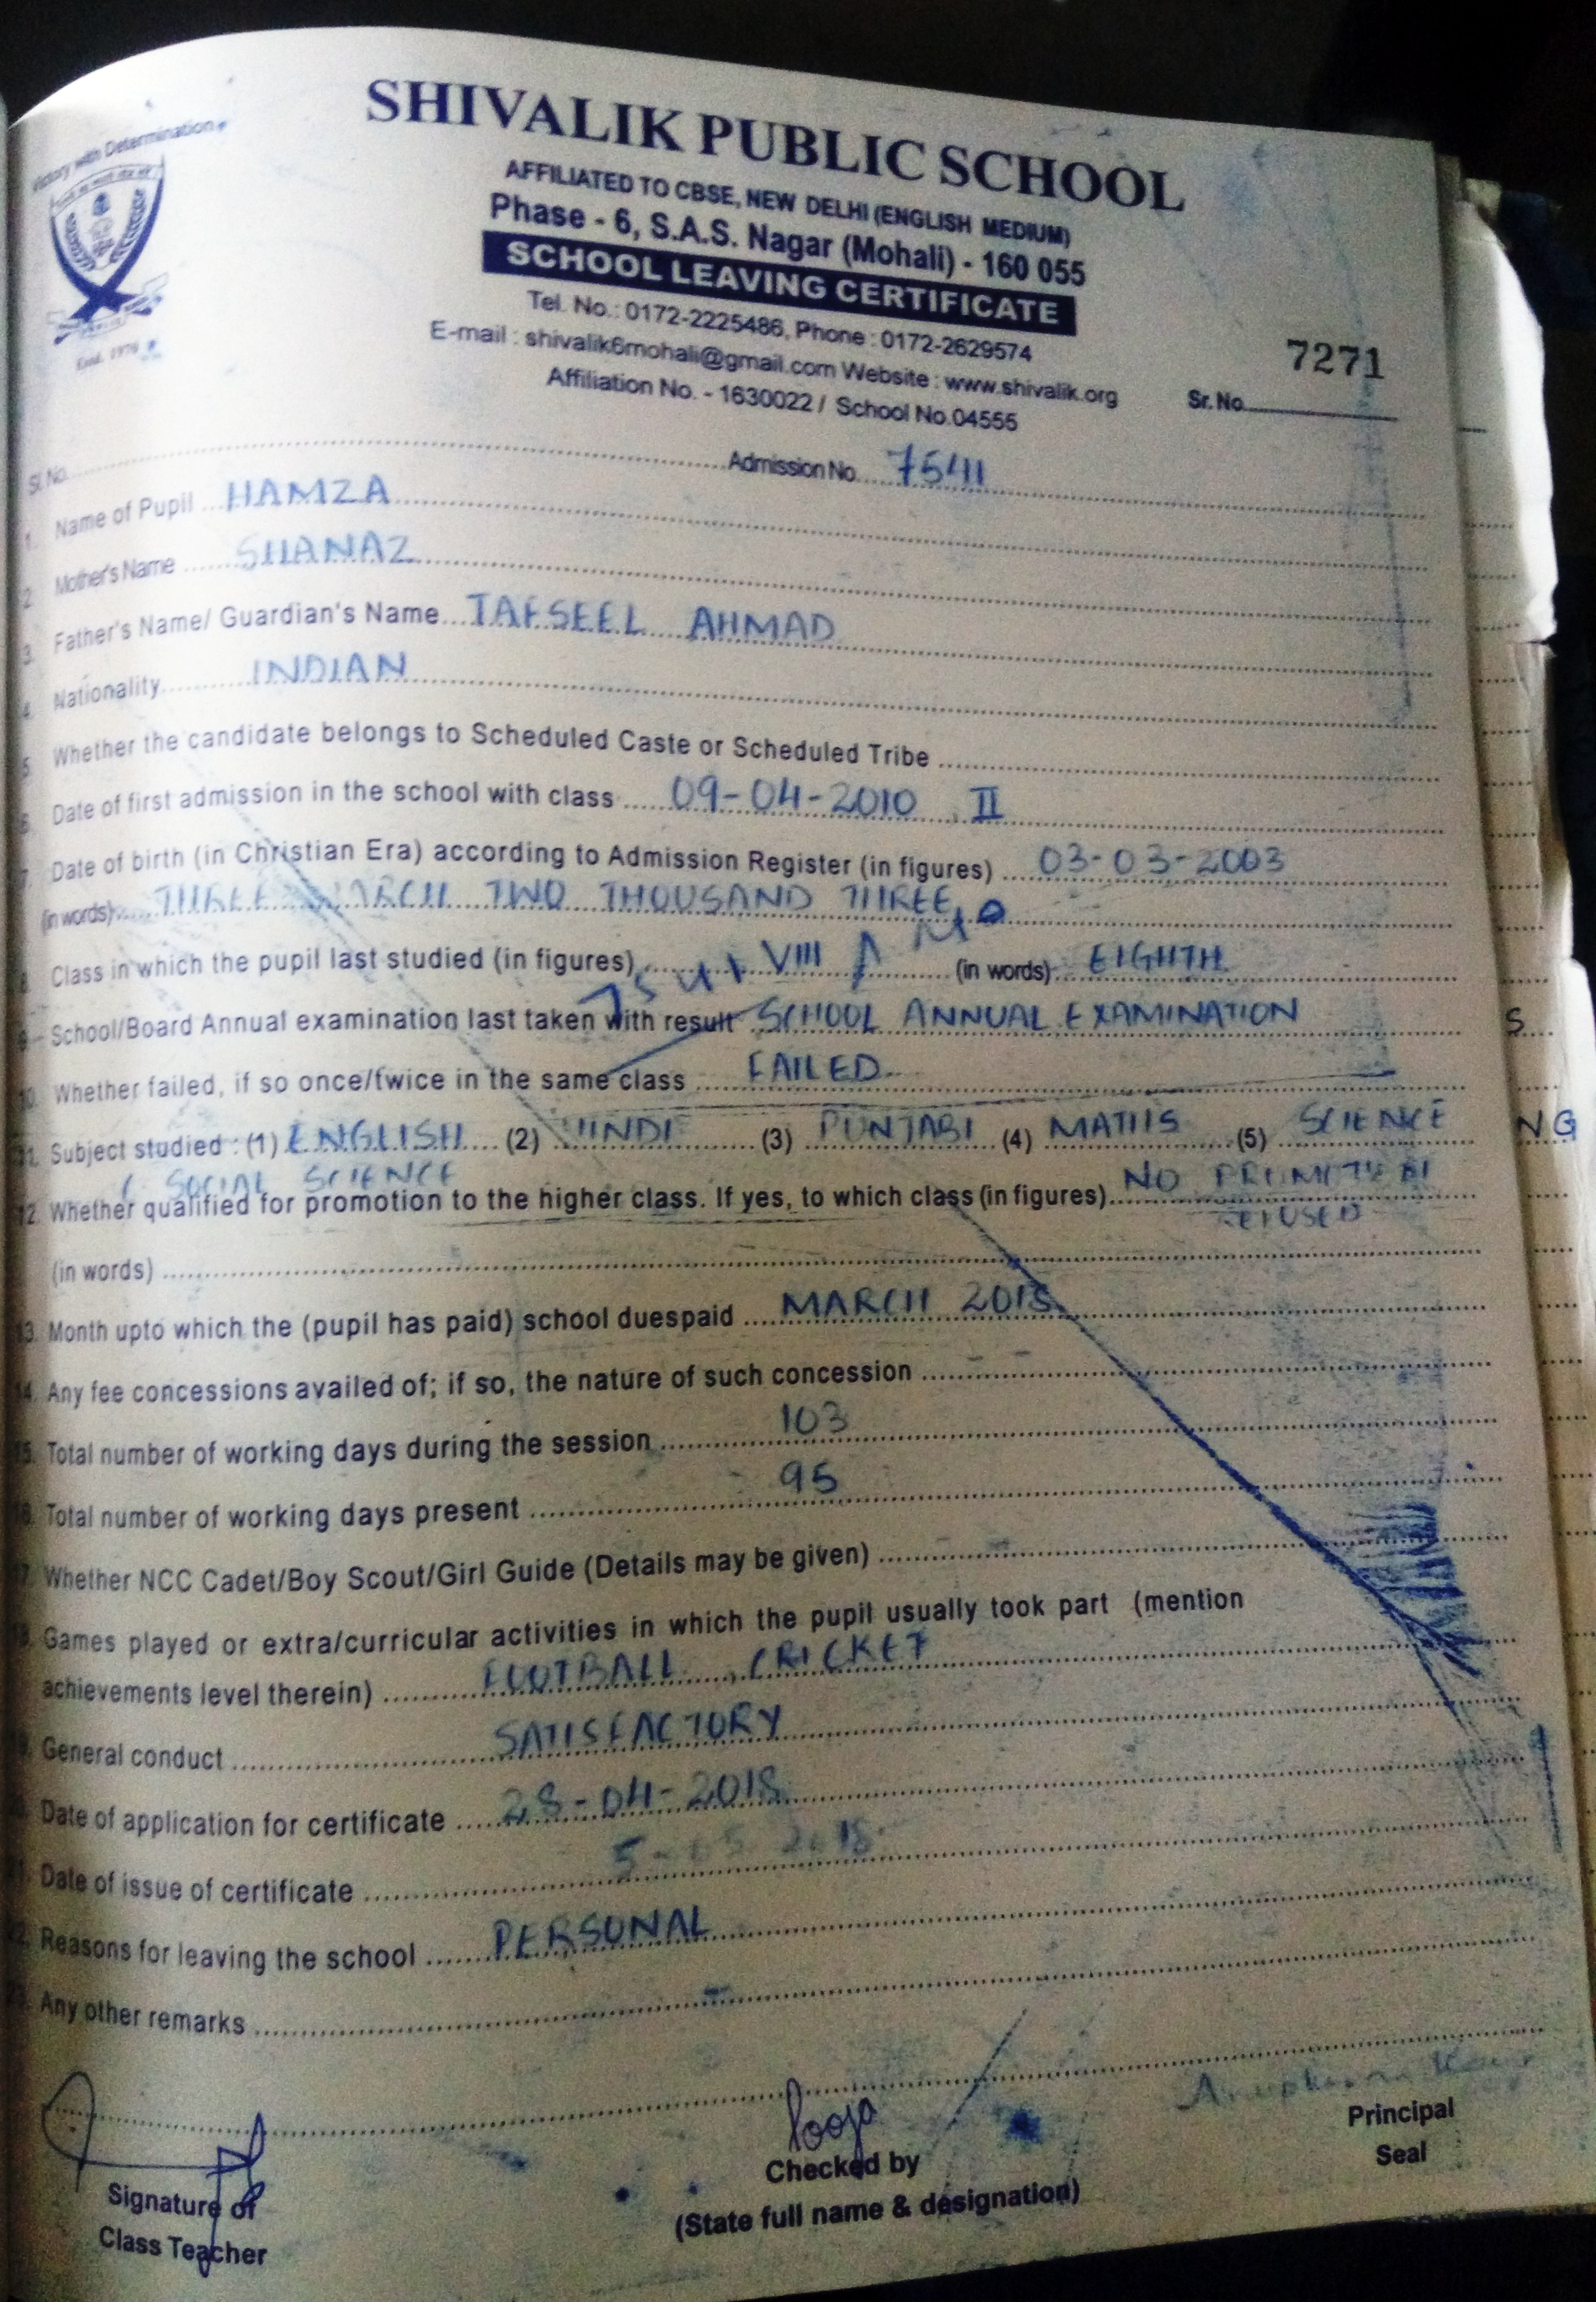 Victory with Determination
SHIVALIK PUBLIC SCHOOL
AFFILIATED TO CBSE, NEW DELHI (ENGLISH MEDIUM)
Phase - 6, S.A.S. Nagar (Mohali) - 160 055
SCHOOL LEAVING CERTIFICATE
Tel. No.: 0172-2225486, Phone : 0172-2629574
E-mail : shivalik6mohali@gmail.com Website : www.shivalik.org
Affiliation No. - 1630022 / School No.04555
Estd. 1976
7271
Sr. No.
Sl. No. Admission No. 7541
1. Name of Pupil HAMZA
2. Mother's Name SHANAZ
3. Father's Name/ Guardian's Name TAFSEEL AHMAD
4. Nationality INDIAN
5. Whether the candidate belongs to Scheduled Caste or Scheduled Tribe
6. Date of first admission in the school with class 09-04-2010, II
7. Date of birth (in Christian Era) according to Admission Register (in figures) 03-03-2003
(in words) THREE MARCH TWO THOUSAND THREE
8. Class in which the pupil last studied (in figures) VIII (in words) EIGHTH
7541
9. School/Board Annual examination last taken with result SCHOOL ANNUAL EXAMINATION
S
10. Whether failed, if so once/twice in the same class FAILED
11. Subject studied : (1) ENGLISH (2) HINDI (3) PUNJABI (4) MATHS (5) SCIENCE
NG
SOCIAL SCIENCE
12. Whether qualified for promotion to the higher class. If yes, to which class (in figures) NO
REFUSED
(in words)
13. Month upto which the (pupil has paid) school duespaid MARCH 2018
14. Any fee concessions availed of; if so, the nature of such concession --
15. Total number of working days during the session 103
16. Total number of working days present 95
17. Whether NCC Cadet/Boy Scout/Girl Guide (Details may be given) --
18. Games played or extra/curricular activities in which the pupil usually took part (mention
achievements level therein) FOOTBALL, CRICKET
19. General conduct SATISFACTORY
20. Date of application for certificate 28-04-2018
21. Date of issue of certificate 5-05-2018
22. Reasons for leaving the school PERSONAL
23. Any other remarks -
Pooja
Signature of
Class Teacher
Checked by
(State full name & designation)
Principal
Seal